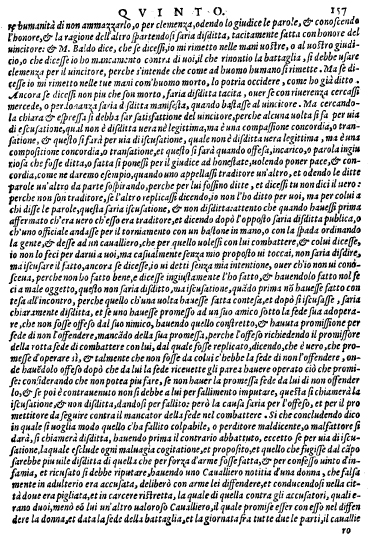 QVINTO. 157
re humanità di non ammazzarlo, o per clemenza, odendo lo giudice le parole, & conoscendo
l'honore, & la ragione dell'altro spartendosi saria disditta, tacitamente fatta con honore del
uincitore: & M. Baldo dice, che se dicessi, io mi rimetto nelle mani uostre, o al uostro giudi-
cio, o che dicesse io ho mancamento contra di uoi, il che rinontio la battaglia, si debbe usare
clemenza per il uincitore, perche s'intende che come ad buomo humano si rimette. Ma se di-
cesse io mi rimetto nelle tue mani com'buomo morto, lo potria occidere, come ho già ditto.
Ancora se dicessi non piu che son morto, saria disditta tacita, ouer se con riuerenza cercassi
mercede, o perdonanza saria disditta manifesta, quando bastasse al uincitore. Ma cercando-
la chiara & espressa si debba far satisfattione del uincitore, perche alcuna uolta si fa per uia
di escusatione, qual non è disditta uera nè legittima, ma è una compassione concordia, o tran-
satione, & questo si farà per uia di escusatione, quale non è disditta uera legittima, ma è una
compositione concordia, o transatione, et questo si farà quando offesa, incarico, o parola ingiu
riosa che fusse ditta, o fatta si ponessi per il giudice ad honestate, uolendo poner pace, & con-
cordia, come ne daremo esempio, quando uno appellassi traditore un'altro, et odendo le ditte
parole un'altro da parte sospirando, perche per lui fossino ditte, et dicessi tu non dici il uero:
perche non son traditore, se l'altro replicassi dicendo, io non l'ho ditto per uoi, ma per colui à
chi dissi le parole, questa saria iscusatione, & non disditta: atento che quando hauessi prima
affermato ch'era uero ch'esso era traditore, et dicendo dopò l'opposto saria disditta publica, o
ch'uno officiale andasse per il torniamento con un bastone in mano, o con la spada ordinando
la gente, & desse ad un caualliero, che per quello uolessi con lui combattere, & colui dicesse,
io non lo feci per darui a uoi, ma casualmente senza mio proposito ui toccai, non saria disdire,
ma iscusare il fatto, ancora se dicessi, io ui detti senza mia intentione, ouer ch'io non ui cono-
sceua, perche non ho fatto bene, & dicesse ingiustamente l'ho fatto, & hauendolo fatto nol fe
ci a male oggetto, questo non saria disditta, ma iscusatione, quãdo prima nõ hauesse fatto con
tesa all'incontro, perche quello ch'una uolta hauesse fatta contesa, et dopò si iscusasse, saria
chiaramente disditta, et se uno hauesse promesso ad un suo amico sotto la fede sua adopera-
re, che non fosse offeso dal suo nimico, hauendo quello constretto, & hauuta promissione per
fede di non l'offendere, mancãdo della sua promessa, perche l'offeso richiedendo il promissore
della rotta fede di combattere con lui, dal quale fosse replicato, dicendo, che è uero, che pro-
messe d'operare sì, & talmente che non fosse da colui c'hebbe la fede di non l'offendere, on-
de hauẽdolo offeso dopò che da lui la fede riceuette gli parea hauere operato ciò che promi-
se: considerando che non potea piu fare, se non hauer la promessa fede da lui di non offender
lo, & se poi è contrauenuto non si debbe a lui per fallimento imputare, questa si chiamerà la
iscusatione, & non disditta, dandosi per fallito: però la causa saria per l'offeso, et per il pro
mettitore da seguire contra il mancator della fede nel combattere. Si che concludendo dico
in quale si uoglia modo quello c'ha fallito colpabile, o perditore maldicente, o malfattore si
darà, si chiamerà disditta, hauendo prima il contrario abbattuto, eccetto se per uia di iscu-
satione, la quale esclude ogni maluagia cogitatione, et proposito, et quello che fuggisse dal capo
sarebbe piu uile disditta di quella che per forza d'arme fosse fatta, & per confesso uinto d'in-
famia, et ricusato si debbe riputare, hauendo uno Caualliero notitia d'una donna, che falsa
mente in adulterio era accusata, deliberò con arme lei diffendere, et conducendosi nella cit-
tà doue era pigliata, et in carcere ristretta, la quale di quella contra gli accusatori, quali e-
rano duoi, menò cõ lui un'altro ualoroso Caualliero, il qual promise esser con esso nel diffen
dere la donna, et data la fede della battaglia, et la giornata fra tutte due le parti, il caualie
ro